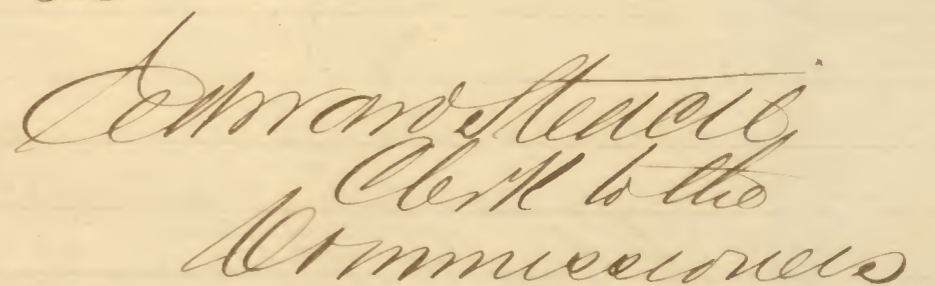 Edward Steacie
Clerk to the
Commissioners